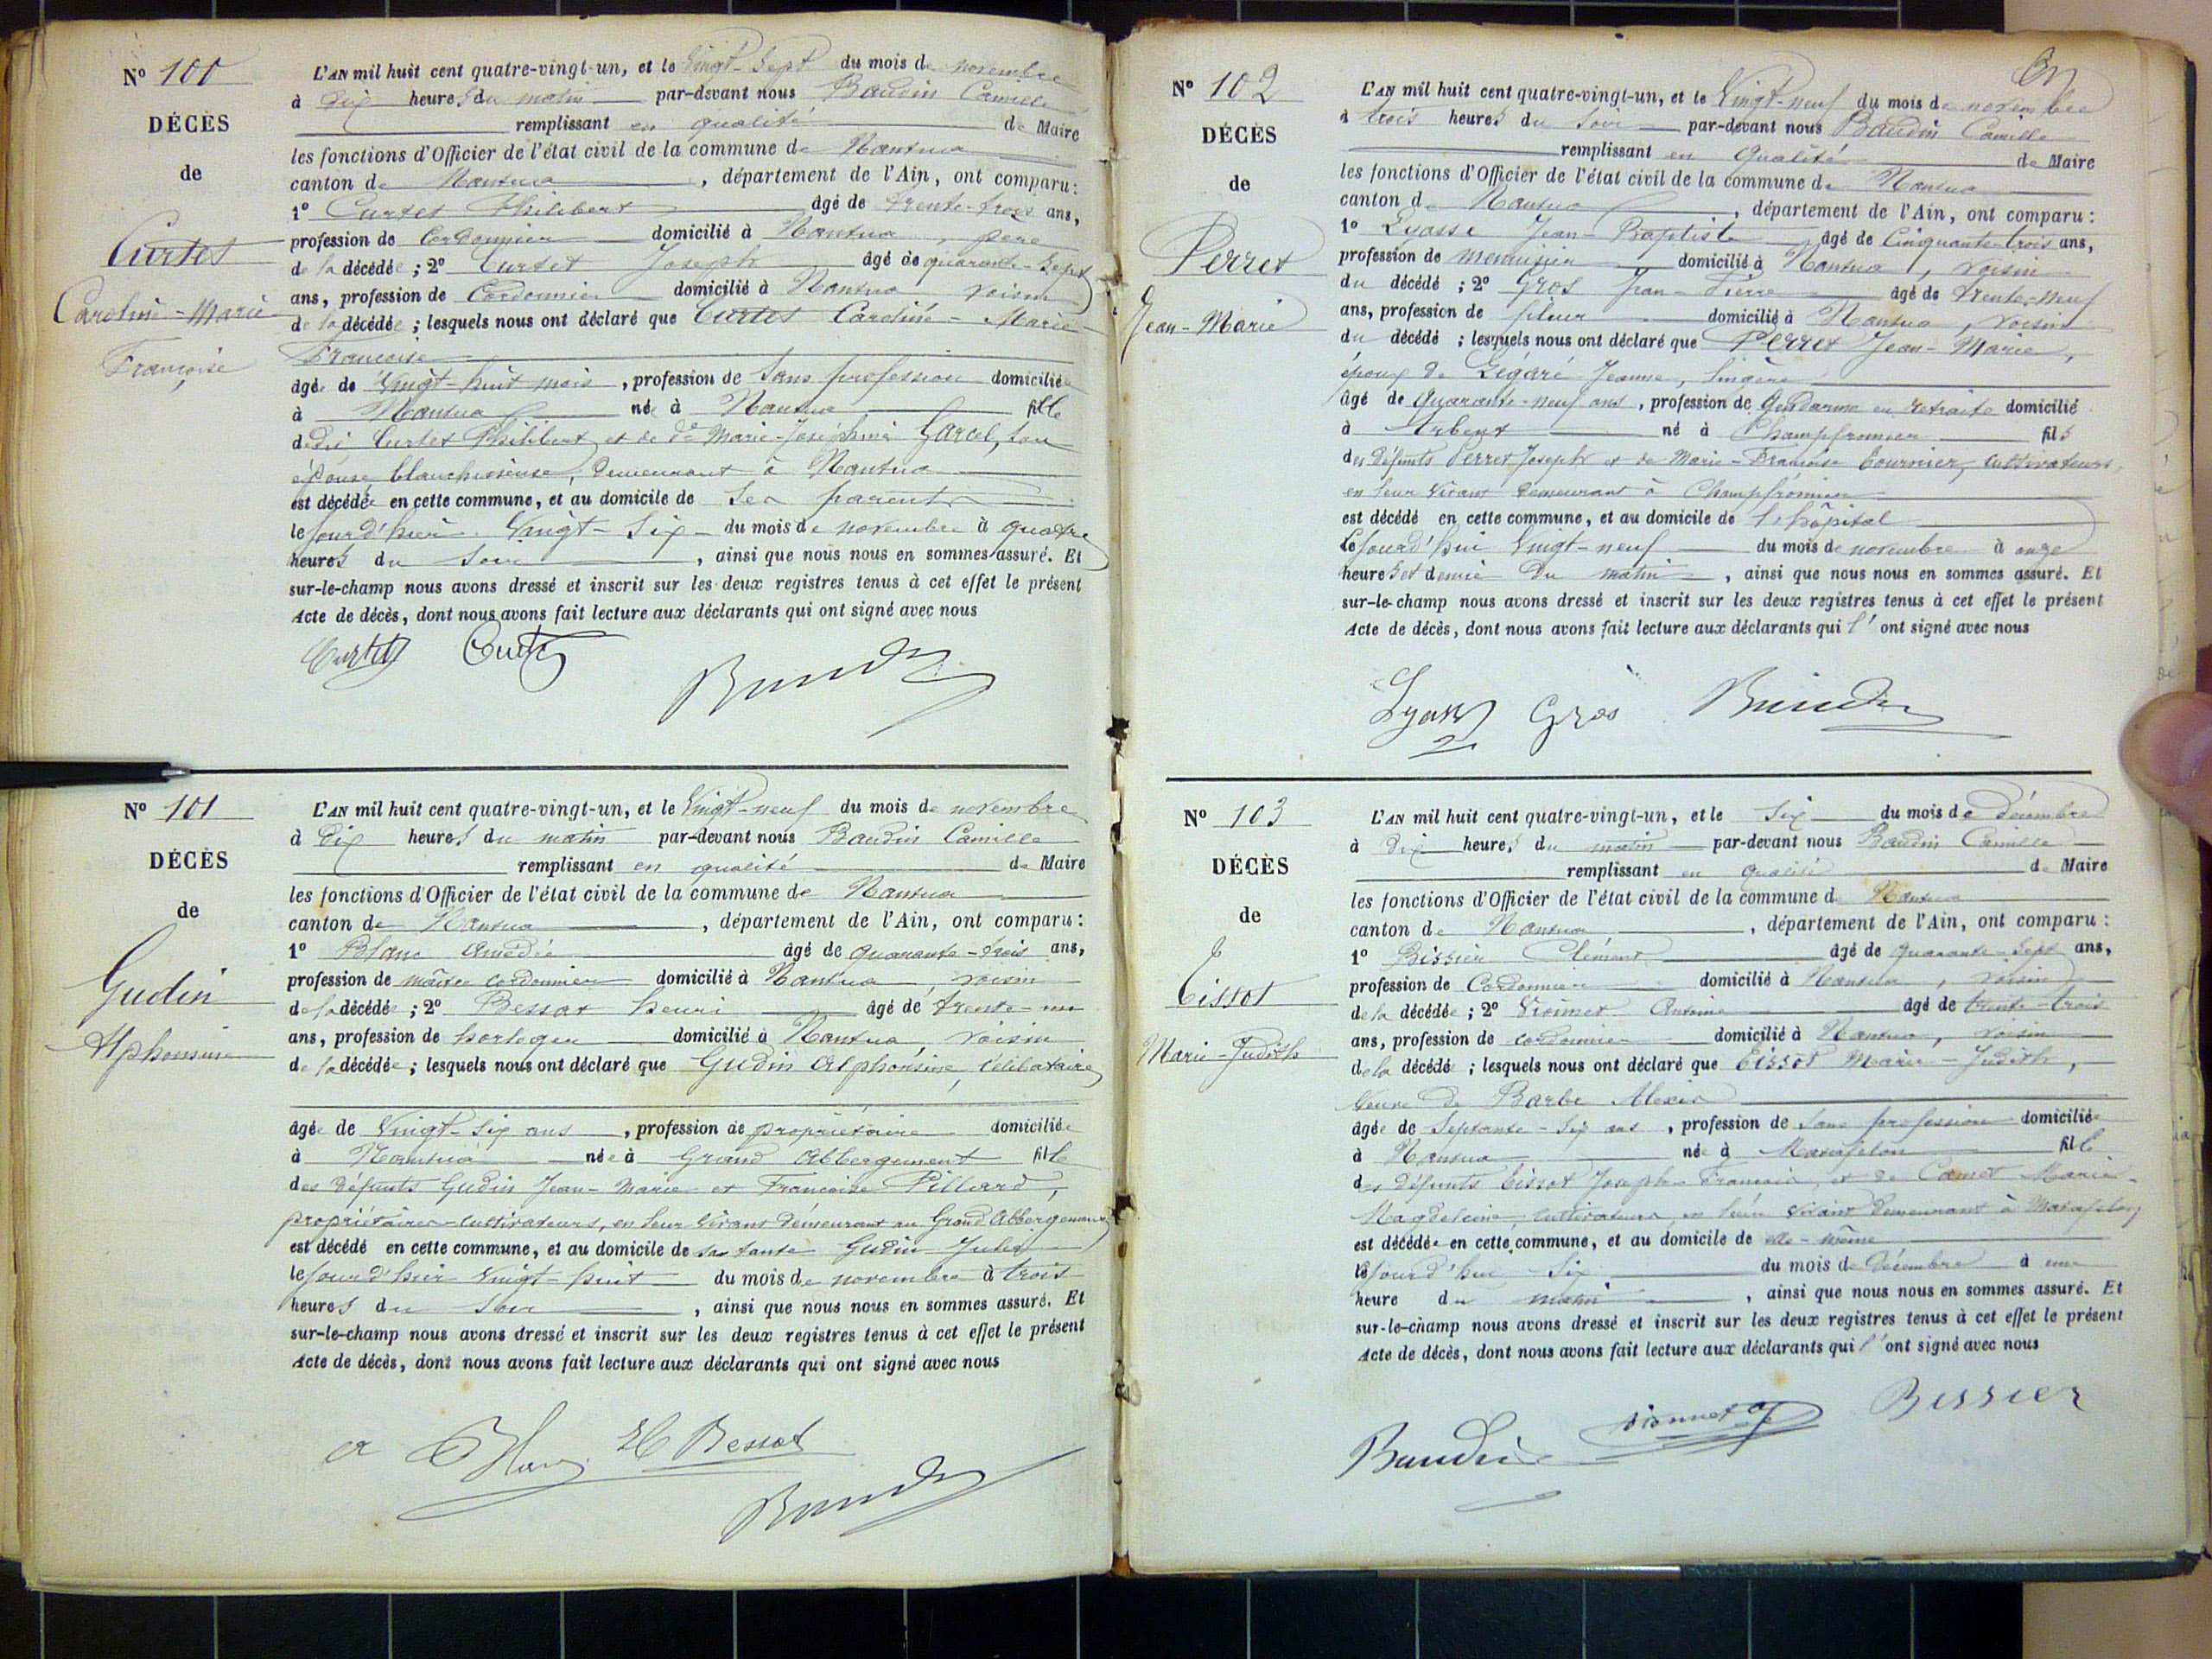 N° 100
DÉCÈS
de
Curtet
Caroline-Marie
Françoise
L'AN mil huit cent quatre-vingt-un, et le Vingt-Sept du mois de novembre
à Dix heures du matin par-devant nous Baudin Camille
remplissant en qualité de Maire
les fonctions d'Officier de l'état civil de la commune de Nantua
canton de Nantua, département de l'Ain, ont comparu:
1° Curtet Philibert âgé de trente-trois ans,
profession de Cordonnier domicilié à Nantua, père
de la décédée; 2° Curtet Joseph âgé de quarante-Sept
ans, profession de Cordonnier domicilié à Nantua voisin
de la décédée; lesquels nous ont déclaré que Curtet Caroline-Marie-
Françoise
âgée de Vingt-huit mois, profession de Sans profession domiciliée
à Nantua née à Nantua fille
dudit Curtet Philibert et de de Marie-Joséphine Garcel, son
épouse blanchisseuse, demeurant à Nantua
est décédée en cette commune, et au domicile de Ses parents
le jour d'hier Vingt-Six du mois de novembre à quatre
heures du Soir, ainsi que nous nous en sommes assuré. Et
sur-le-champ nous avons dressé et inscrit sur les deux registres tenus à cet effet le présent
Acte de décès, dont nous avons fait lecture aux déclarants qui ont signé avec nous
Curtet Curtet
Baudin
N° 101
DÉCÈS
de
Gudin
Alphonsine
L'AN mil huit cent quatre-vingt-un, et le Vingt-neuf du mois de novembre
à Dix heures du matin par-devant nous Baudin Camille
remplissant en qualité de Maire
les fonctions d'Officier de l'état civil de la commune de Nantua
canton de Nantua, département de l'Ain, ont comparu:
1° Blanc Amédée âgé de quarante-trois ans,
profession de maître cordonnier domicilié à Nantua, voisin
de la décédée; 2° Bessat henri âgé de trente-un
ans, profession de horloger domicilié à Nantua, voisin
de la décédée; lesquels nous ont déclaré que Gudin Alphonsine, Célibataire
âgée de Vingt-Six ans, profession de propriétaire domiciliée
à Nantua née à Grand Abbergement fille
des défunts Gudin Jean-Marie et Françoise Pillard,
propriétaires-cultivateurs, en leur vivant demeurant au Grand Abbergement
est décédé en cette commune, et au domicile de sa tante Gudin Julie
le jour d'hier Vingt-huit du mois de novembre à trois
heures du Soir, ainsi que nous nous en sommes assuré. Et
sur-le-champ nous avons dressé et inscrit sur les deux registres tenus à cet effet le présent
Acte de décès, dont nous avons fait lecture aux déclarants qui ont signé avec nous
H Bessat
Baudin
N° 102
DÉCÈS
de
Perret
Jean-Marie
L'AN mil huit cent quatre-vingt-un, et le Vingt-neuf du mois de novembre
à trois heures du Soir par-devant nous Baudin Camille
remplissant en qualité de Maire
les fonctions d'Officier de l'état civil de la commune de Nantua
canton de Nantua, département de l'Ain, ont comparu:
1° Lyasse Jean-Baptiste âgé de Cinquante-trois ans,
profession de menuisier domicilié à Nantua, voisin
du décédé; 2° Gros Jean-Pierre âgé de trente-neuf
ans, profession de fileur domicilié à Nantua, voisin
du décédé; lesquels nous ont déclaré que Perret Jean-Marie,
époux de Légaré Jeanne, lingère
âgé de Quarante-neuf ans, profession de Gendarme en retraite domicilié
à Arbent né à Champfromier fils
des défunts Perret Joseph et de Marie-Françoise Tournier, cultivateurs,
en leur vivant demeurant à Champfromier
est décédé en cette commune, et au domicile de l'hôpital
le jourd'hui Vingt-neuf du mois de novembre à onze
heures et demie du matin, ainsi que nous nous en sommes assuré. Et
sur-le-champ nous avons dressé et inscrit sur les deux registres tenus à cet effet le présent
Acte de décès, dont nous avons fait lecture aux déclarants qui l'ont signé avec nous
Lyasse Gros Baudin
N° 103
DÉCÈS
de
Tissot
Marie-Judith
L'AN mil huit cent quatre-vingt-un, et le Six du mois de Décembre
à Dix heures du matin par-devant nous Baudin Camille
remplissant en qualité de Maire
les fonctions d'Officier de l'état civil de la commune de Nantua
canton de Nantua, département de l'Ain, ont comparu:
1° Bissier Clément âgé de quarante-Sept ans,
profession de Cordonnier domicilié à Nantua, voisin
de la décédée; 2° Vionnet Antoine âgé de trente-trois
ans, profession de cordonnier domicilié à Nantua, voisin
de la décédée; lesquels nous ont déclaré que Tissot Marie-Judith,
Veuve de Barbe Alexis
âgée de Septante-Six ans, profession de Sans profession domiciliée
à Nantua née à Matafelon fille
des défunts Tissot Joseph-François et de Carnet Marie-
Magdeleine, cultivateurs, en leur vivant demeurant à Matafelon
est décédée en cette commune, et au domicile de elle-même
le jourd'hui Six du mois de Décembre à une
heure du matin, ainsi que nous nous en sommes assuré. Et
sur-le-champ nous avons dressé et inscrit sur les deux registres tenus à cet effet le présent
Acte de décès, dont nous avons fait lecture aux déclarants qui l'ont signé avec nous
Baudin Vionnet a Bissier